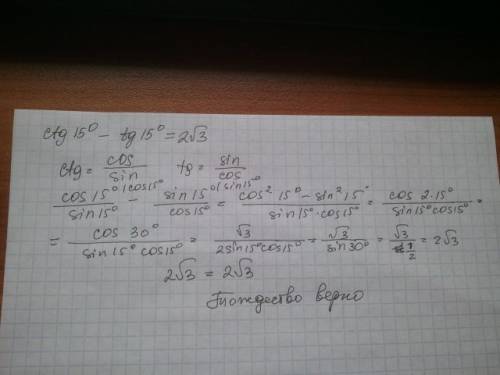 ctg 15° - tg 15° = 2√3
ctg = cos/sin tg = sin/cos
cos 15° (cos 15°/sin 15° - sin 15° (sin 15°/cos 15° = cos² 15° - sin² 15°/sin 15° · cos 15° = cos 2·15°/sin 15° cos 15° =
= cos 30°/sin 15° cos 15° = √3/2 sin 15° cos 15° = √3/sin 30° = √3/1/2 = 2√3
2√3 = 2√3
Тождество верно